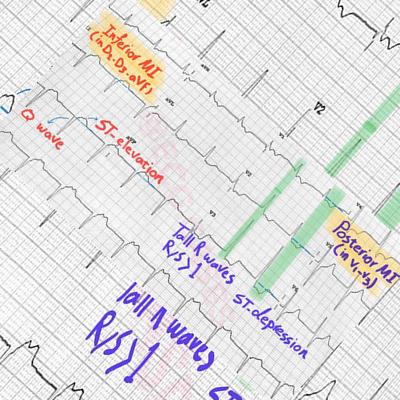 V1
Inferior MI
(in D2-D3-aVF)
aVR
aVL
aVF
Q wave
ST-elevation
V1
V2
V2
V3
V4
V5
V6
Tall R waves
R/S > 1
ST-depression
Posterior MI
(in V1-V3)
Tall R waves
R/S > 1
ST